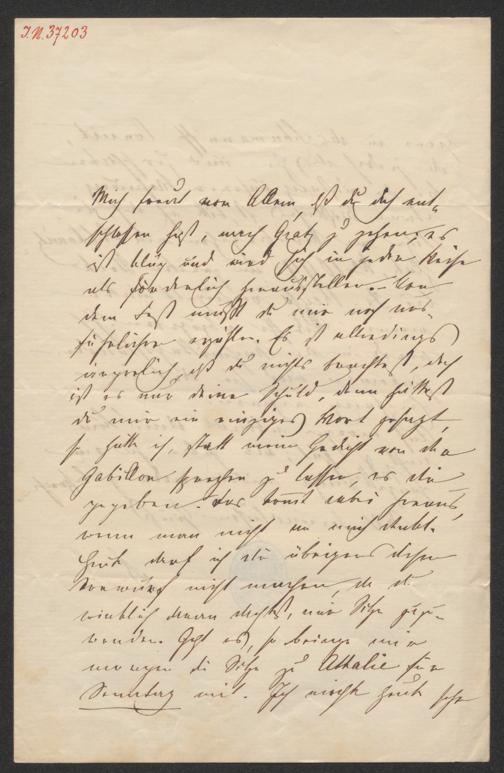 I.N. 37203
Mich freut vor Allem, daß du dich ent-
schlossen hast, nach Graz zu gehen, es
ist klug und wird sich in jeder Weise
als förderlich herausstellen. – Von
dem Fest mußt du mir noch aus-
führlicher erzählen. Es ist allerdings
ärgerlich, daß du nichts brachtest, doch
ist es nur deine Schuld, denn hättest
du mir ein einziges Wort gesagt,
so hätte ich, statt mein Gedicht von der
Gabillon sprechen zu lassen, es dir
gegeben. Das kommt dabei heraus,
wenn man nicht an mich denkt.
Heute darf ich dir übrigens diesen
Vorwurf nicht machen, da du
wirklich daran dachtest, mir Sitze
wenden. Geht es, so bringe mir
morgen die Sitze zu Athalie für
Sonntag mit. Ich möchte heute sehr